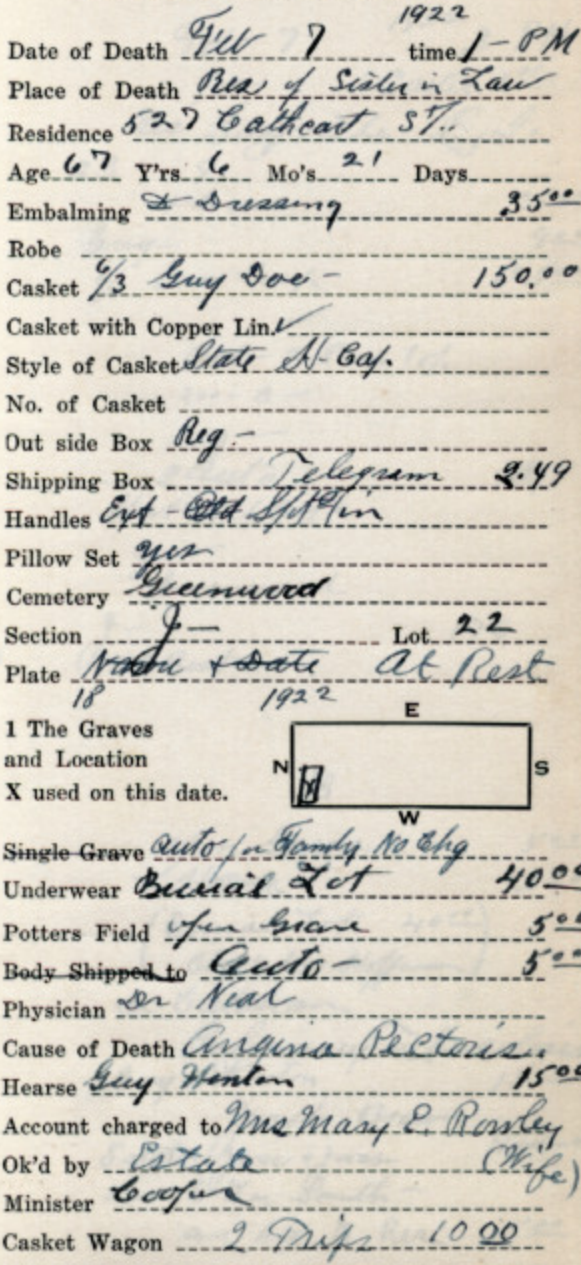 1922
Date of Death Feb 7 time 1 - PM
Place of Death Res of Sister in Law
Residence 527 Cathcart ST.
Age 67 Y'rs 6 Mo's 21 Days
Embalming & Dressing 35.00
Robe
Casket 6/3 Guy Doe - 150.00
Casket with Copper Lin. ✓
Style of Casket State
No. of Casket
Out side Box Reg -
Shipping Box Telegram 2.49
Handles Ext - Old
Pillow Set yes
Cemetery Greenwood
Section J - Lot 22
Plate Name & Date At Rest
18 1922
1 The Graves
and Location
X used on this date.
E
N X S
W
Single Grave Auto for Family No Chg
Underwear Burial Lot 40.00
Potters Field open Grave 5.00
Body Shipped to Auto - 5.00
Physician Dr Neal
Cause of Death Angina Pectoris
Hearse Guy Henton 15.00
Account charged to Mrs Mary E. Rowley
Ok'd by Estate (Wife)
Minister Cooper
Casket Wagon 2 Trips 10 00